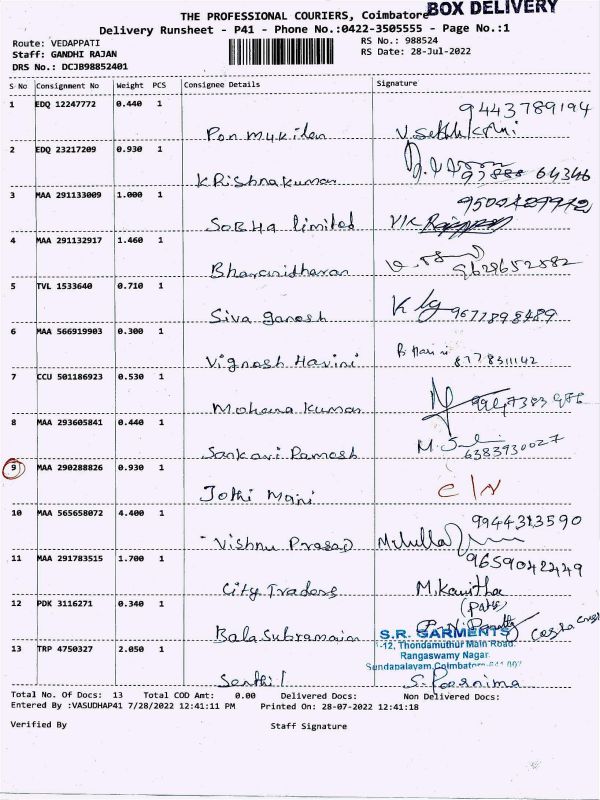 BOX DELIVERY
THE PROFESSIONAL COURIERS, Coimbatore
Delivery Runsheet - P41 - Phone No.:0422-3505555 - Page No.:1
Route: VEDAPPATI RS No.: 988524
Staff: GANDHI RAJAN RS Date: 28-Jul-2022
DRS No.: DCJB98852401
S No Consignment No Weight PCS Consignee Details Signature
1 EDQ 12247772 0.440 1 9443789194
Pon Mukilan
2 EDQ 23217209 0.930 1
KRishnakumar 64346
3 MAA 291133009 1.000 1
SOBHA limited VK
4 MAA 291132917 1.460 1
Bharanidharan 9629652582
5 TVL 1533640 0.710 1
Siva ganesh 9677898489
6 MAA 566919903 0.300 1
Vignesh Harini B Harini 8778311142
7 CCU 501186923 0.530 1
Mohana Kumar
8 MAA 293605841 0.440 1
Sankari Ramesh 6383930027
9 MAA 290288826 0.930 1
Jothi Mani C/N
10 MAA 565658072 4.400 1 9944313590
Vishnu Prasad
11 MAA 291783515 1.700 1 9659042449
City Traders M.Kavitha
12 PDK 3116271 0.340 1
Bala Subramain
S.R. GARMENTS
13 TRP 4750327 2.050 1 -12, Thondamuthur Main Road,
Rangaswamy Nagar,
Sundapalayam, Coimbatore-641 007
Senthil S. Poornima
Total No. Of Docs: 13 Total COD Amt: 0.00 Delivered Docs: Non Delivered Docs:
Entered By :VASUDHAP41 7/28/2022 12:41:11 PM Printed On: 28-07-2022 12:41:18
Verified By Staff Signature